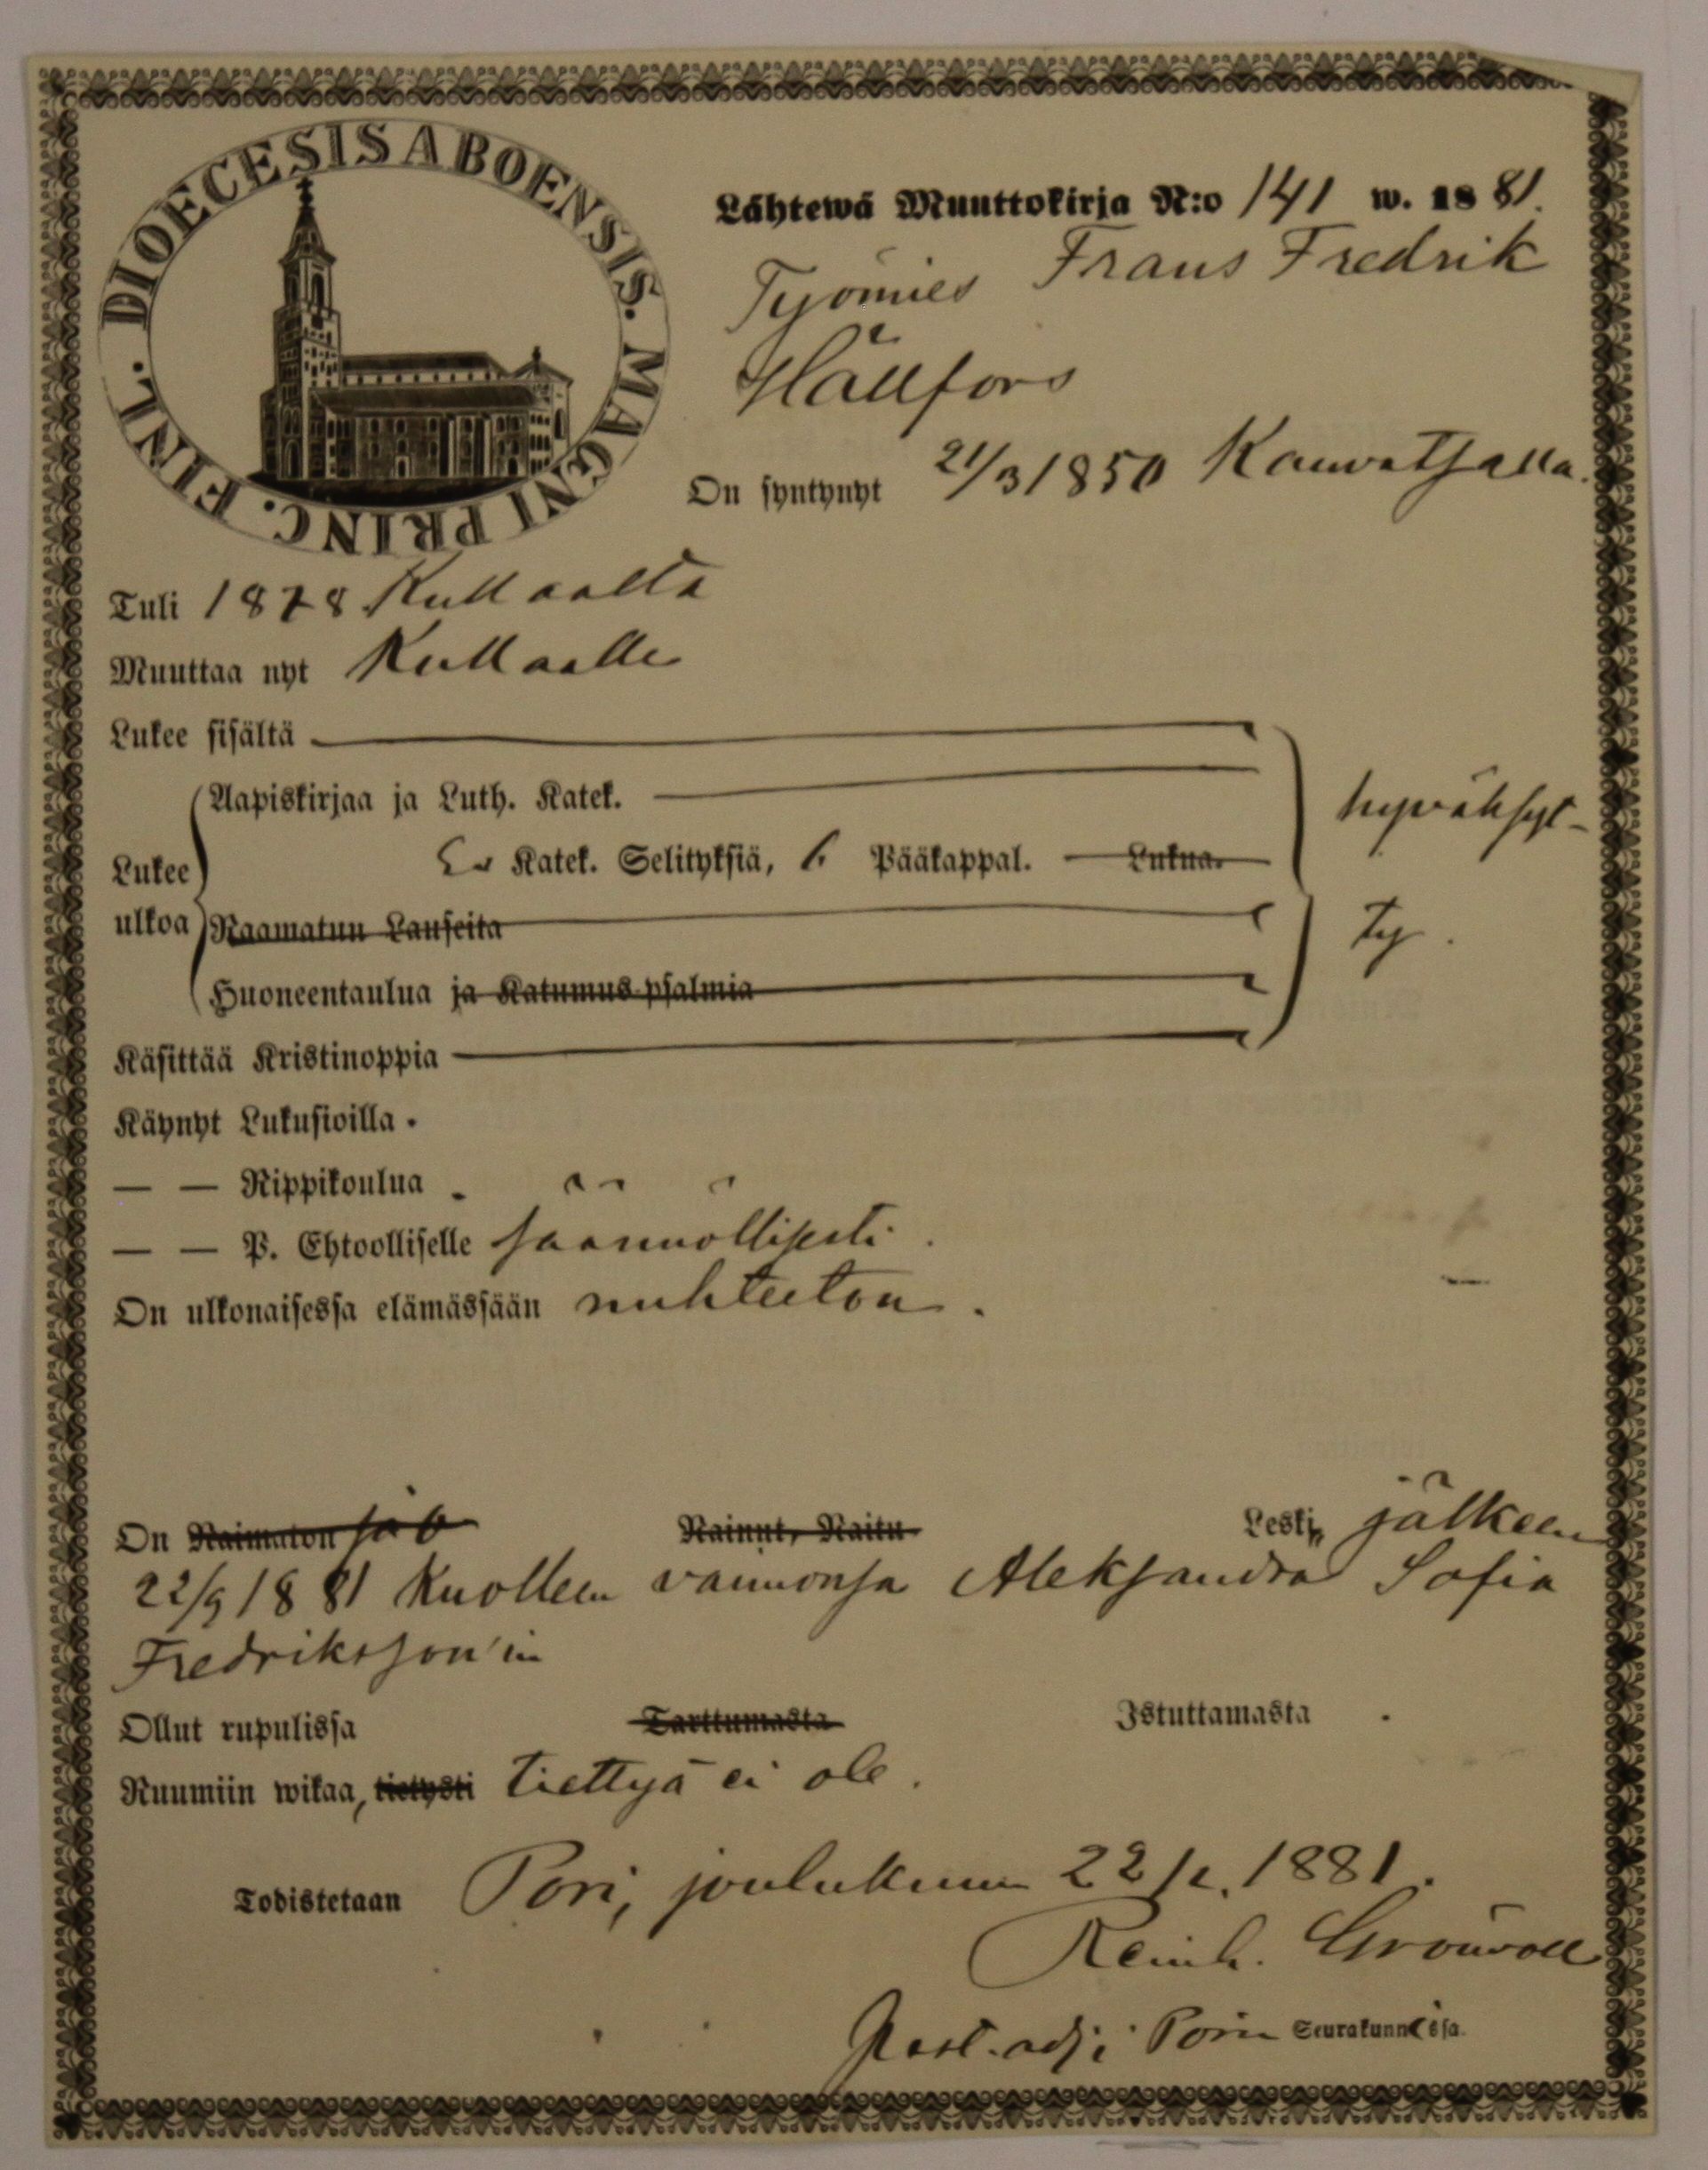 DIOECESIS ABOENSIS. MAGNI PRINC. FINL.
Lähtewä Muuttokirja N:o 141 w. 1881.
Työmies Frans Fredrik
Hällfors
On syntynyt 21/3 1850 Kauvatsalla.
Tuli 1878 Kullaalta
Muuttaa nyt Kullaalle
Lukee sisältä
Aapiskirjaa ja Luth. Katek.
hyväksyt-
Katek. Selityksiä, 6 Pääkappal. Lukua.
Lukee
ulkoa
Raamatun Lauseita
ty.
Huoneentaulua ja Katumus-psalmia
Käsittää Kristinoppia
Käynyt Lukusioilla.
— — Rippikoulua
— — P. Ehtoolliselle säännöllisesti.
On ulkonaisessa elämässään nuhteeton.
On Naimaton Nainut, Naitu Leski, jälkeen
22/9 1881 kuolleen vaimonsa Aleksandra Sofia
Fredriksson'in
Ollut rupulissa Tarttumasta Istuttamasta.
Ruumiin wikaa, tietysti tiettyä ei ole.
Todistetaan Pori, joulukuun 22 p. 1881.
Reinh. Grönvall
Past. adj. i Porin Seurakunnissa.